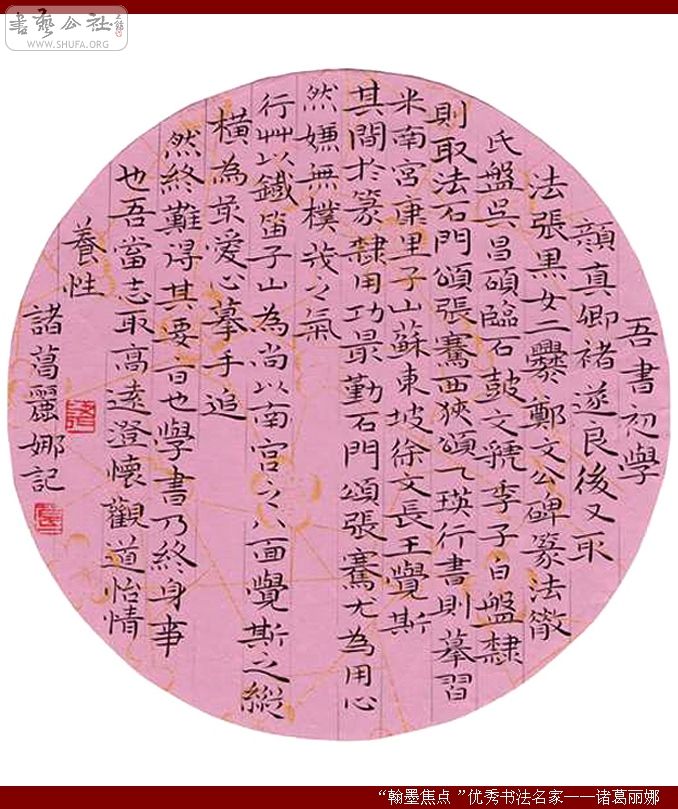 書藝公社
WWW.SHUFA.ORG
吾書初學
顏真卿褚遂良後又取
法張黑女二爨鄭文公碑篆法散
氏盤吳昌碩臨石鼓文虢季子白盤隸
則取法石門頌張騫西狹頌乙瑛行書則摹習
米南宮康里子山蘇東坡徐文長王覺斯
其間於篆隸用功最勤石門頌張騫尤為用心
然嫌無樸茂之氣
行艸以鐵笛子山為尚以南宮之八面覺斯之縱
橫為最愛心摹手追
然終難得其要旨也學書乃終身事
也吾當志取高遠澄懷觀道怡情
養性
諸葛麗娜記
“翰墨焦点 ”优秀书法名家——诸葛丽娜